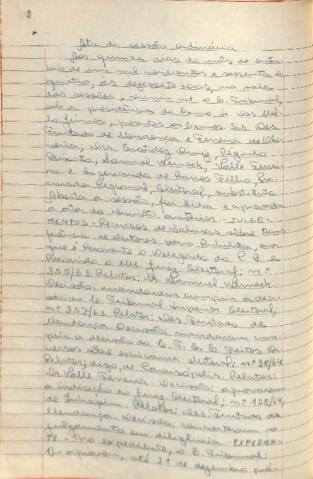 Ata da sessão ordinária
Aos quinze dias do mês de outu-
bro de mil novecentos e sessenta e
quatro, às dezessete horas, na sala
das sessões, reuniu-se o E. Tribunal,
sob a presidência do Exmo. Sr. Des.
presentes os Exmos. Srs. Des.
Furtado de Mendonça e Ferreira de Oli-
veira, Drs.
Peixoto, Samuel Werneck, Valle Ferrei-
ra e Fernando de Barros Filho, Pro-
curador Regional Eleitoral, substituto.
Aberta a sessão, foi lida e aprovada
a ata da reunião anterior. JULGA-
MENTOS - Recursos de Salinas sôbre trans-
ferência de eleitores para em
que é Recorrente o Delegado do P. R. e
Recorrido o MM. Juiz Eleitoral; nº
355/63. Relator: Dr. Samuel Werneck.
Decisão: mandaram cumprir a deci-
são do E. Tribunal Superior Eleitoral;
nº 357/63. Relator: Des. Furtado de
Mendonça. Decisão: mandaram cum-
prir a decisão do E. T. S. E. Feitos di-
versos sôbre escrivania eleitoral: nº 28/64,
Relator, digo, de Paraisópolis. Relator:
Dr. Valle Ferreira. Decisão: aprovaram
a indicação do Juiz Eleitoral; nº 128/64,
de Relator: Des. Furtado de
Mendonça. Decisão: converteram o
julgamento em diligência - EXPEDIEN-
TE - No expediente, o E. Tribunal:
1) aprovou, até 31 de dezembro pró-